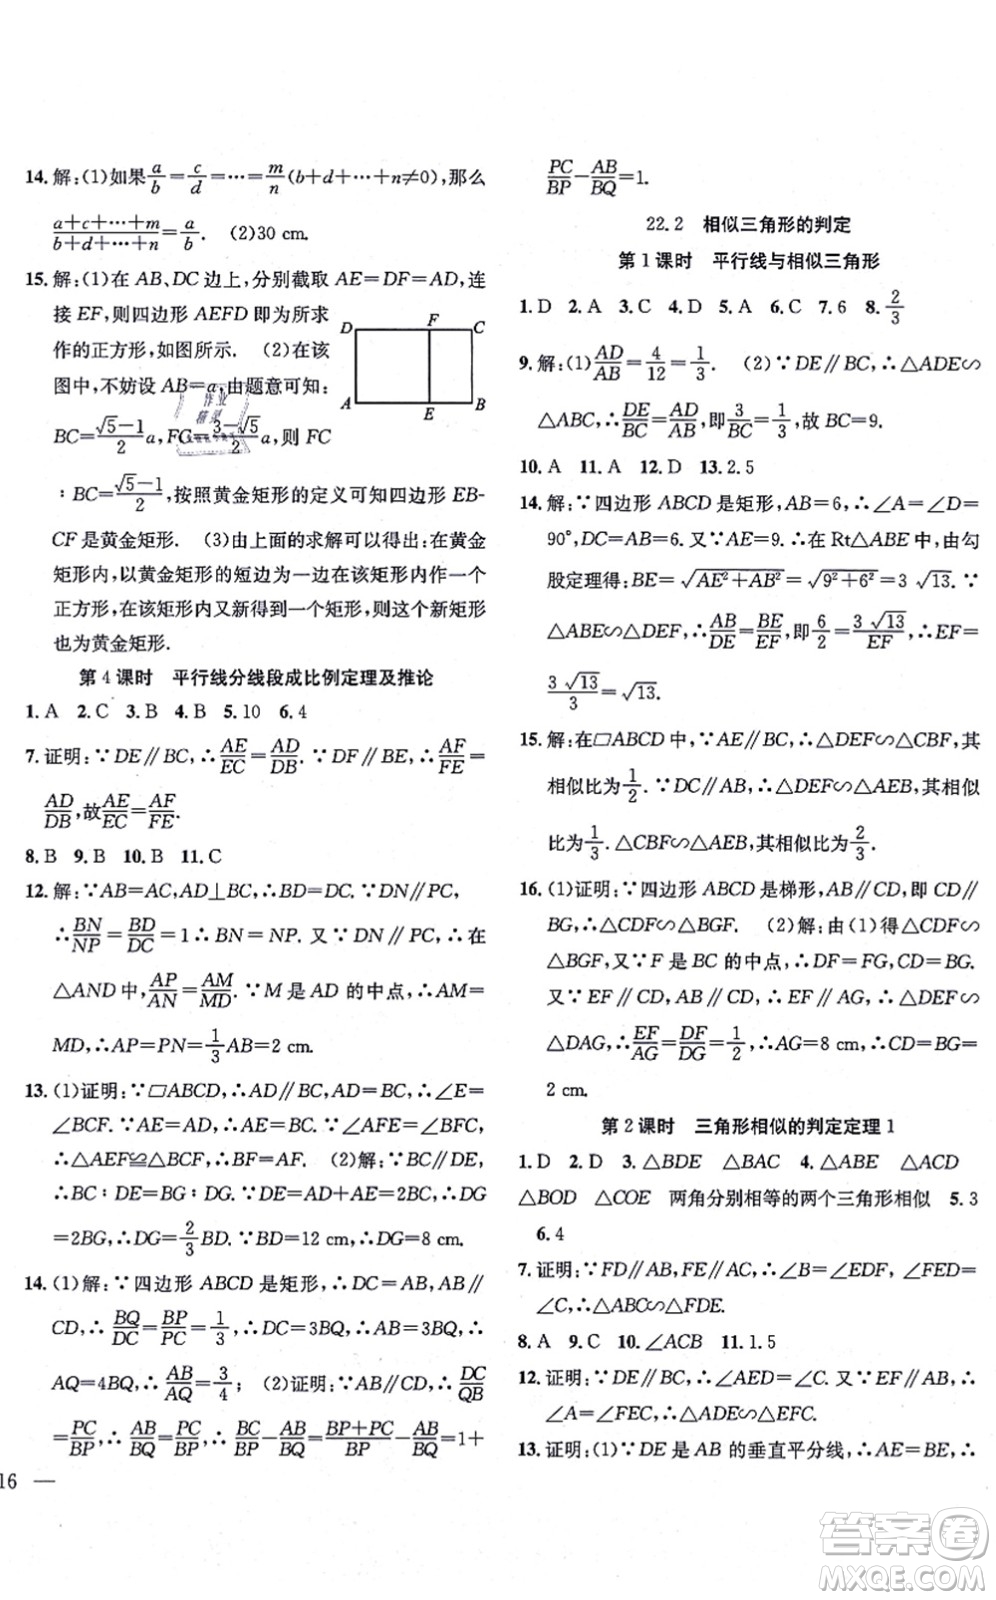 14.解:(1)如果a/b=c/d=…=m/n(b+d+…+n≠0),那么
(a+c+…+m)/(b+d+…+n)=a/b. (2)30 cm.
15.解:(1)在 AB、DC 边上,分别截取 AE=DF=AD,连
接 EF,则四边形 AEFD 即为所求
作的正方形,如图所示. (2)在该
图中,不妨设 AB=a,由题意可知:
BC=(√5-1)/2 a,FC=(3-√5)/2 a,则 FC
:BC=(√5-1)/2,按照黄金矩形的定义可知四边形 EB-
CF 是黄金矩形. (3)由上面的求解可以得出:在黄金
矩形内,以黄金矩形的短边为一边在该矩形内作一个
正方形,在该矩形内又新得到一个矩形,则这个新矩形
也为黄金矩形.
D F C
A E B
第 4 课时 平行线分线段成比例定理及推论
1.A 2.C 3.B 4.B 5.10 6.4
7.证明:∵DE∥BC,∴AE/EC=AD/DB. ∵DF∥BE,∴AF/FE=
AD/DB,故AE/EC=AF/FE.
8.B 9.B 10.B 11.C
12.解:∵AB=AC,AD⊥BC,∴BD=DC. ∵DN∥PC,
∴BN/NP=BD/DC=1∴BN=NP. 又∵DN∥PC,∴在
△AND中,AP/AN=AM/MD. ∵M 是 AD 的中点,∴AM=
MD,∴AP=PN=1/3AB=2 cm.
13.(1)证明:∵▱ABCD,∴AD∥BC,AD=BC,∴∠E=
∠BCF. ∵AE=AD,∴AE=BC. ∵∠AFE=∠BFC,
∴△AEF≌△BCF,∴BF=AF. (2)解:∵DE∥BC,
∴BC:DE=BG:DG. ∵DE=AD+AE=2BC,∴DG
=2BG,∴DG=2/3BD. ∵BD=12 cm,∴DG=8 cm.
14.(1)解:∵四边形 ABCD 是矩形,∴DC=AB,AB∥
CD,∴BQ/DC=BP/PC=1/3,∴DC=3BQ,∴AB=3BQ,
AQ=4BQ,∴AB/AQ=3/4; (2)证明:∵AB∥CD,∴DC/QB
=PC/BP,∴AB/BQ=PC/BP,∴BC/BP-AB/BQ=(BP+PC)/BP-AB/BQ=1+
16 —
PC/BP-AB/BQ=1.
22.2 相似三角形的判定
第 1 课时 平行线与相似三角形
1.D 2.C 3.C 4.D 5.A 6.C 7.6 8.2/3
9.解:(1)AD/AB=4/12=1/3. (2)∵DE∥BC,∴△ADE∽
△ABC,∴DE/BC=AD/AB,即3/BC=1/3,故 BC=9.
10.A 11.A 12.D 13.2.5
14.解:∵四边形 ABCD 是矩形,AB=6,∴∠A=∠D=
90°,DC=AB=6.又∵AE=9.∴在 Rt△ABE 中,由勾
股定理得:BE=√(AE²+AB²)=√(9²+6²)=3√13. ∵
△ABE∽△DEF,∴AB/DE=BE/EF,即6/2=3√13/EF,∴EF=
3√13/3=√13.
15.解:在▱ABCD 中,∵AE∥BC,∴△DEF∽△CBF,其
相似比为1/2. ∵CD∥AB,∴△DEF∽△AEB,其相似
比为1/3. △CBF∽△AEB,其相似比为2/3.
16.(1)证明:∵四边形 ABCD 是梯形,AB∥CD,即 CD∥
BG,∴△CDF∽△BGF. (2)解:由(1)得△CDF∽
△BGF,又∵F 是 BC 的中点,∴DF=FG,CD=BG.
又∵EF∥CD,AB∥CD,∴EF∥AG,∴△DEF∽
△DAG,∴EF/AG=DF/DG=1/2,∴AG=8 cm,∴CD=BG=
2 cm.
第 2 课时 三角形相似的判定定理 1
1.D 2.D 3.△BDE △BAC 4.△ABE △ACD
△BOD △COE 两角分别相等的两个三角形相似 5.3
6.4
7.证明:∵FD∥AB,FE∥AC,∴∠B=∠FDE,∠FED=
∠C,∴△ABC∽△FDE.
8.A 9.C 10.∠ACB 11.1.5
12.证明:∵DE∥BC,∴∠AED=∠C.又∵EF∥AB,∴
∠A=∠FEC,∴△ADE∽△EFC.
13.证明:(1)∵DE 是 AB 的垂直平分线,∴AE=BE,∴
作业
精灵
答案卷
MXQE.COM